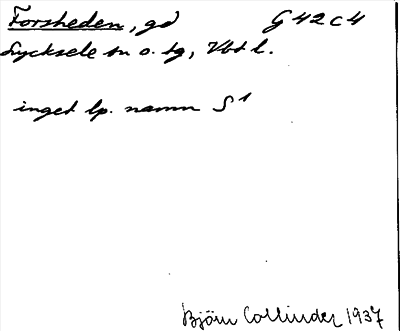 Forsheden, gd G 42 c 4
Lycksele sn o. tg, Vbt l.
inget lp. namn S¹
Björn Collinder 1937